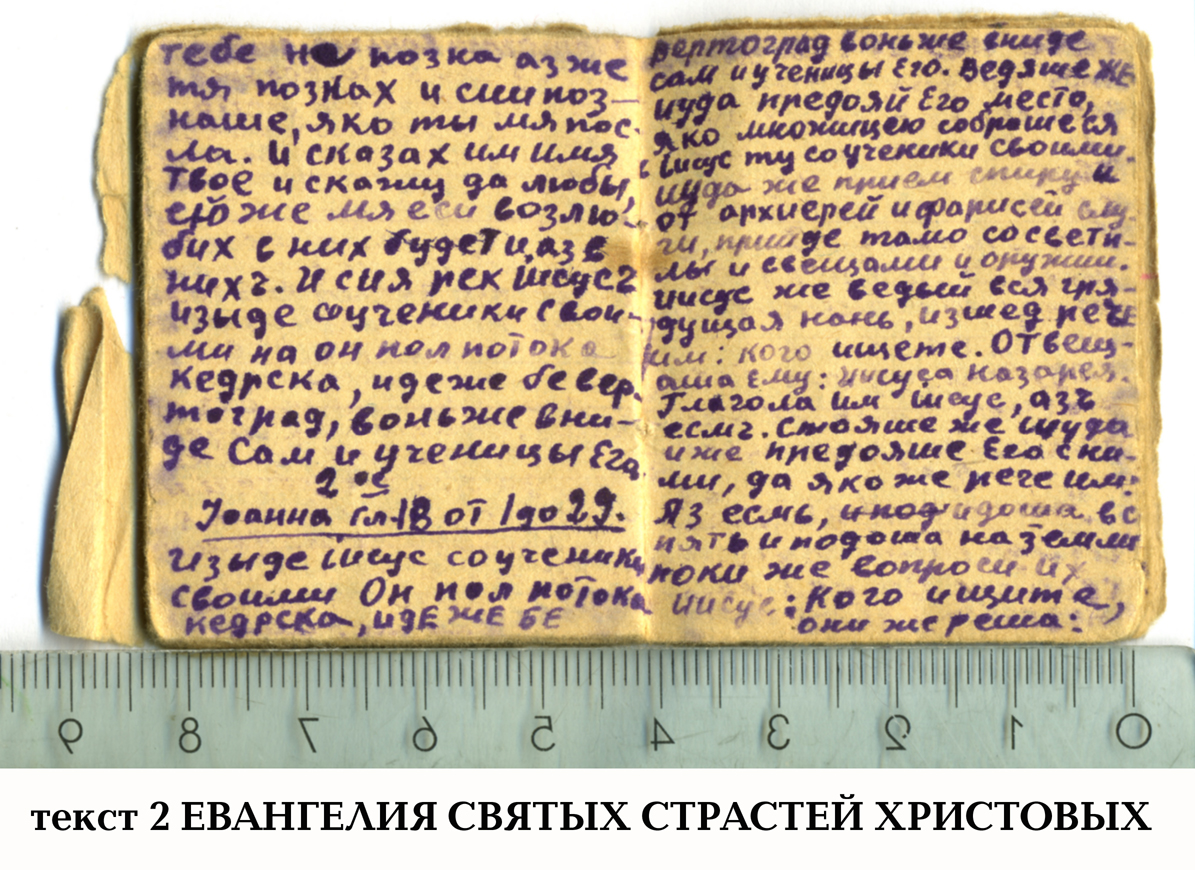 тебе не позна аз же
тя познах и сии поз-
наше, яко ты мя пос-
ла. И сказах им имя
твое и скажу да любы,
ею же мя еси возлю-
бих в них будет и аз в
нихъ. И сия рек Іисусъ
изыде соученики свои-
ми на он пол потока
кедрска, идеже бе вер-
тоград, вонь же вни-
де Сам и ученицы Его
2 ое
Іоанна гл. 18 от 1 до 29.
изыде Іисус со ученики
своими Он пол потока
кедрска, идЕ жЕ БЕ
вертоград вонь же вниде
сам и ученицы Его. Ведяше жЕ
иуда предояй Его место,
яко множицею собрашеся
Іисус ту со ученики своими.
иуда же прием спиру и
от архиерей и фарисей слу-
ги, прииде тамо со свети-
лы и свещами и оружии.
иисус же ведый вся гря-
дущая нань, изшед рече
им: кого ищете. Отвещ-
аша Ему: иисуса назарея.
Глагола им Іисус, азъ
есмъ. Стояше же Іиуда
иже предояше Его с ни-
ми, да яко же рече им:
Яз есмь, идоша вс
пять и подоша на земли
поки же вопроси их
иисус: Кого ищите,
они же реша:
9 8 7 6 5 4 3 2 1 0
текст 2 ЕВАНГЕЛИЯ СВЯТЫХ СТРАСТЕЙ ХРИСТОВЫХ